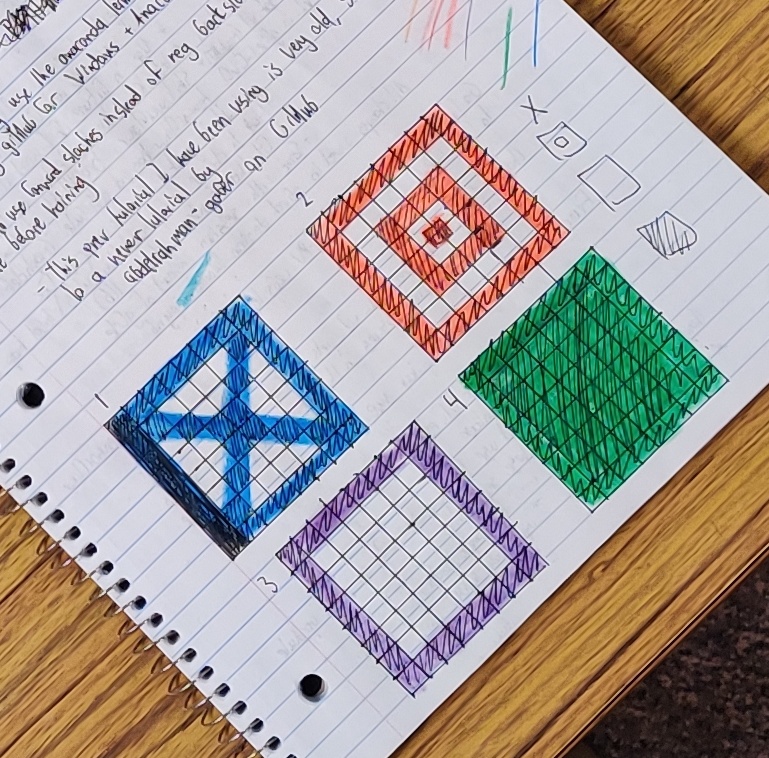 use the anaconda
github for Windows + Anac
use forward slashes instead of reg back
before training
- This prev tutorial I have been using is very old,
to a newer tutorial by
abdelrahman-gaber on GitHub
2
1
4
3
X